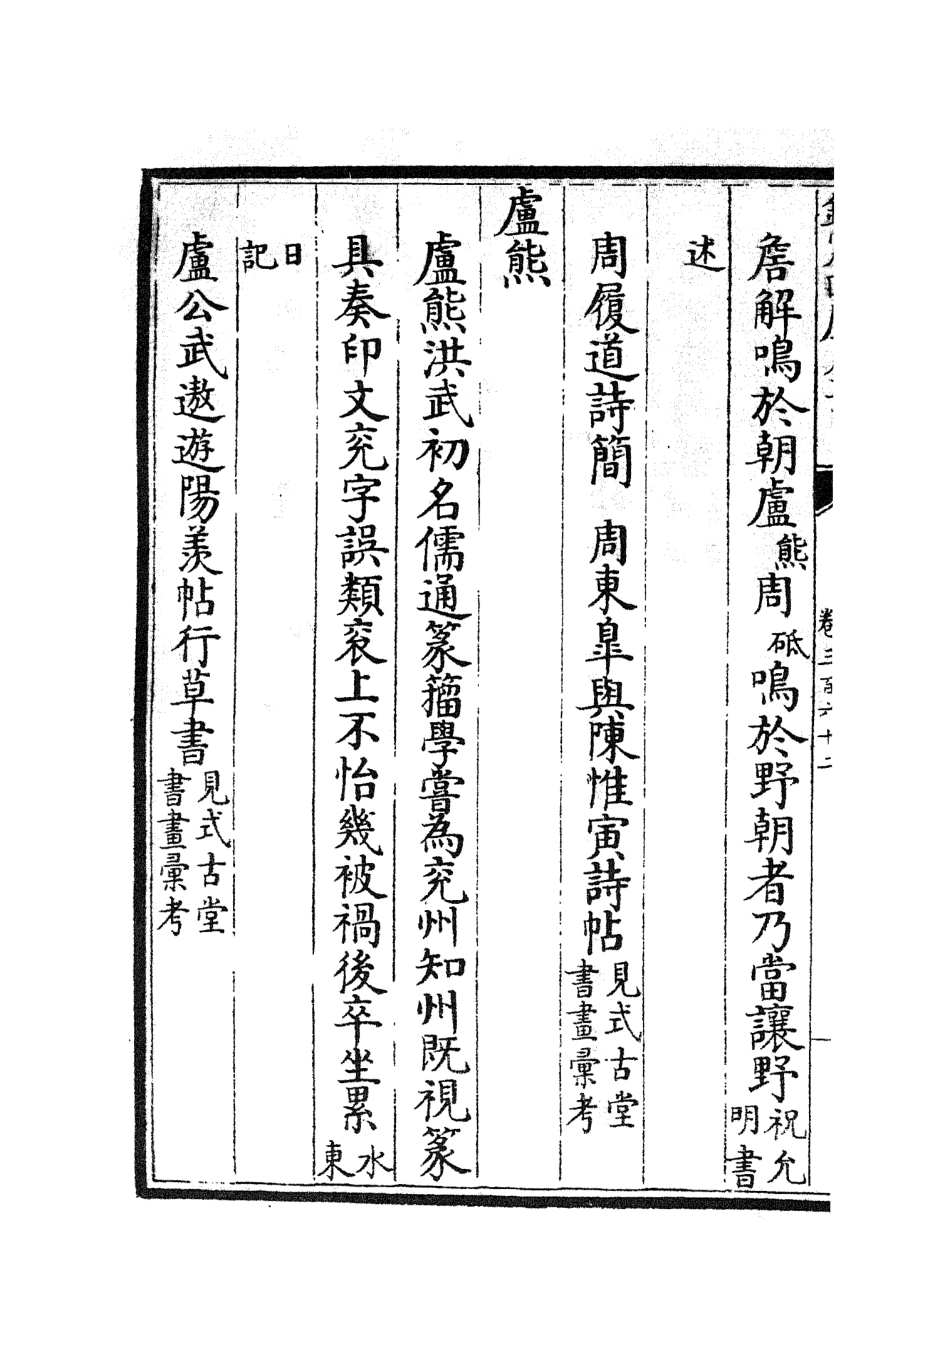 詹解鳴於朝盧熊周砥鳴於野朝者乃當讓野祝允明書
述
周履道詩簡　周東臯與陳惟寅詩帖見式古堂書畫彚考
盧熊
盧熊洪武初名儒通篆籀學嘗為兖州知州既視篆
具奏印文兖字誤類衮上不怡幾被禍後卒坐累水東
日記
盧公武遨遊陽羡帖行草書見式古堂書畫彚考